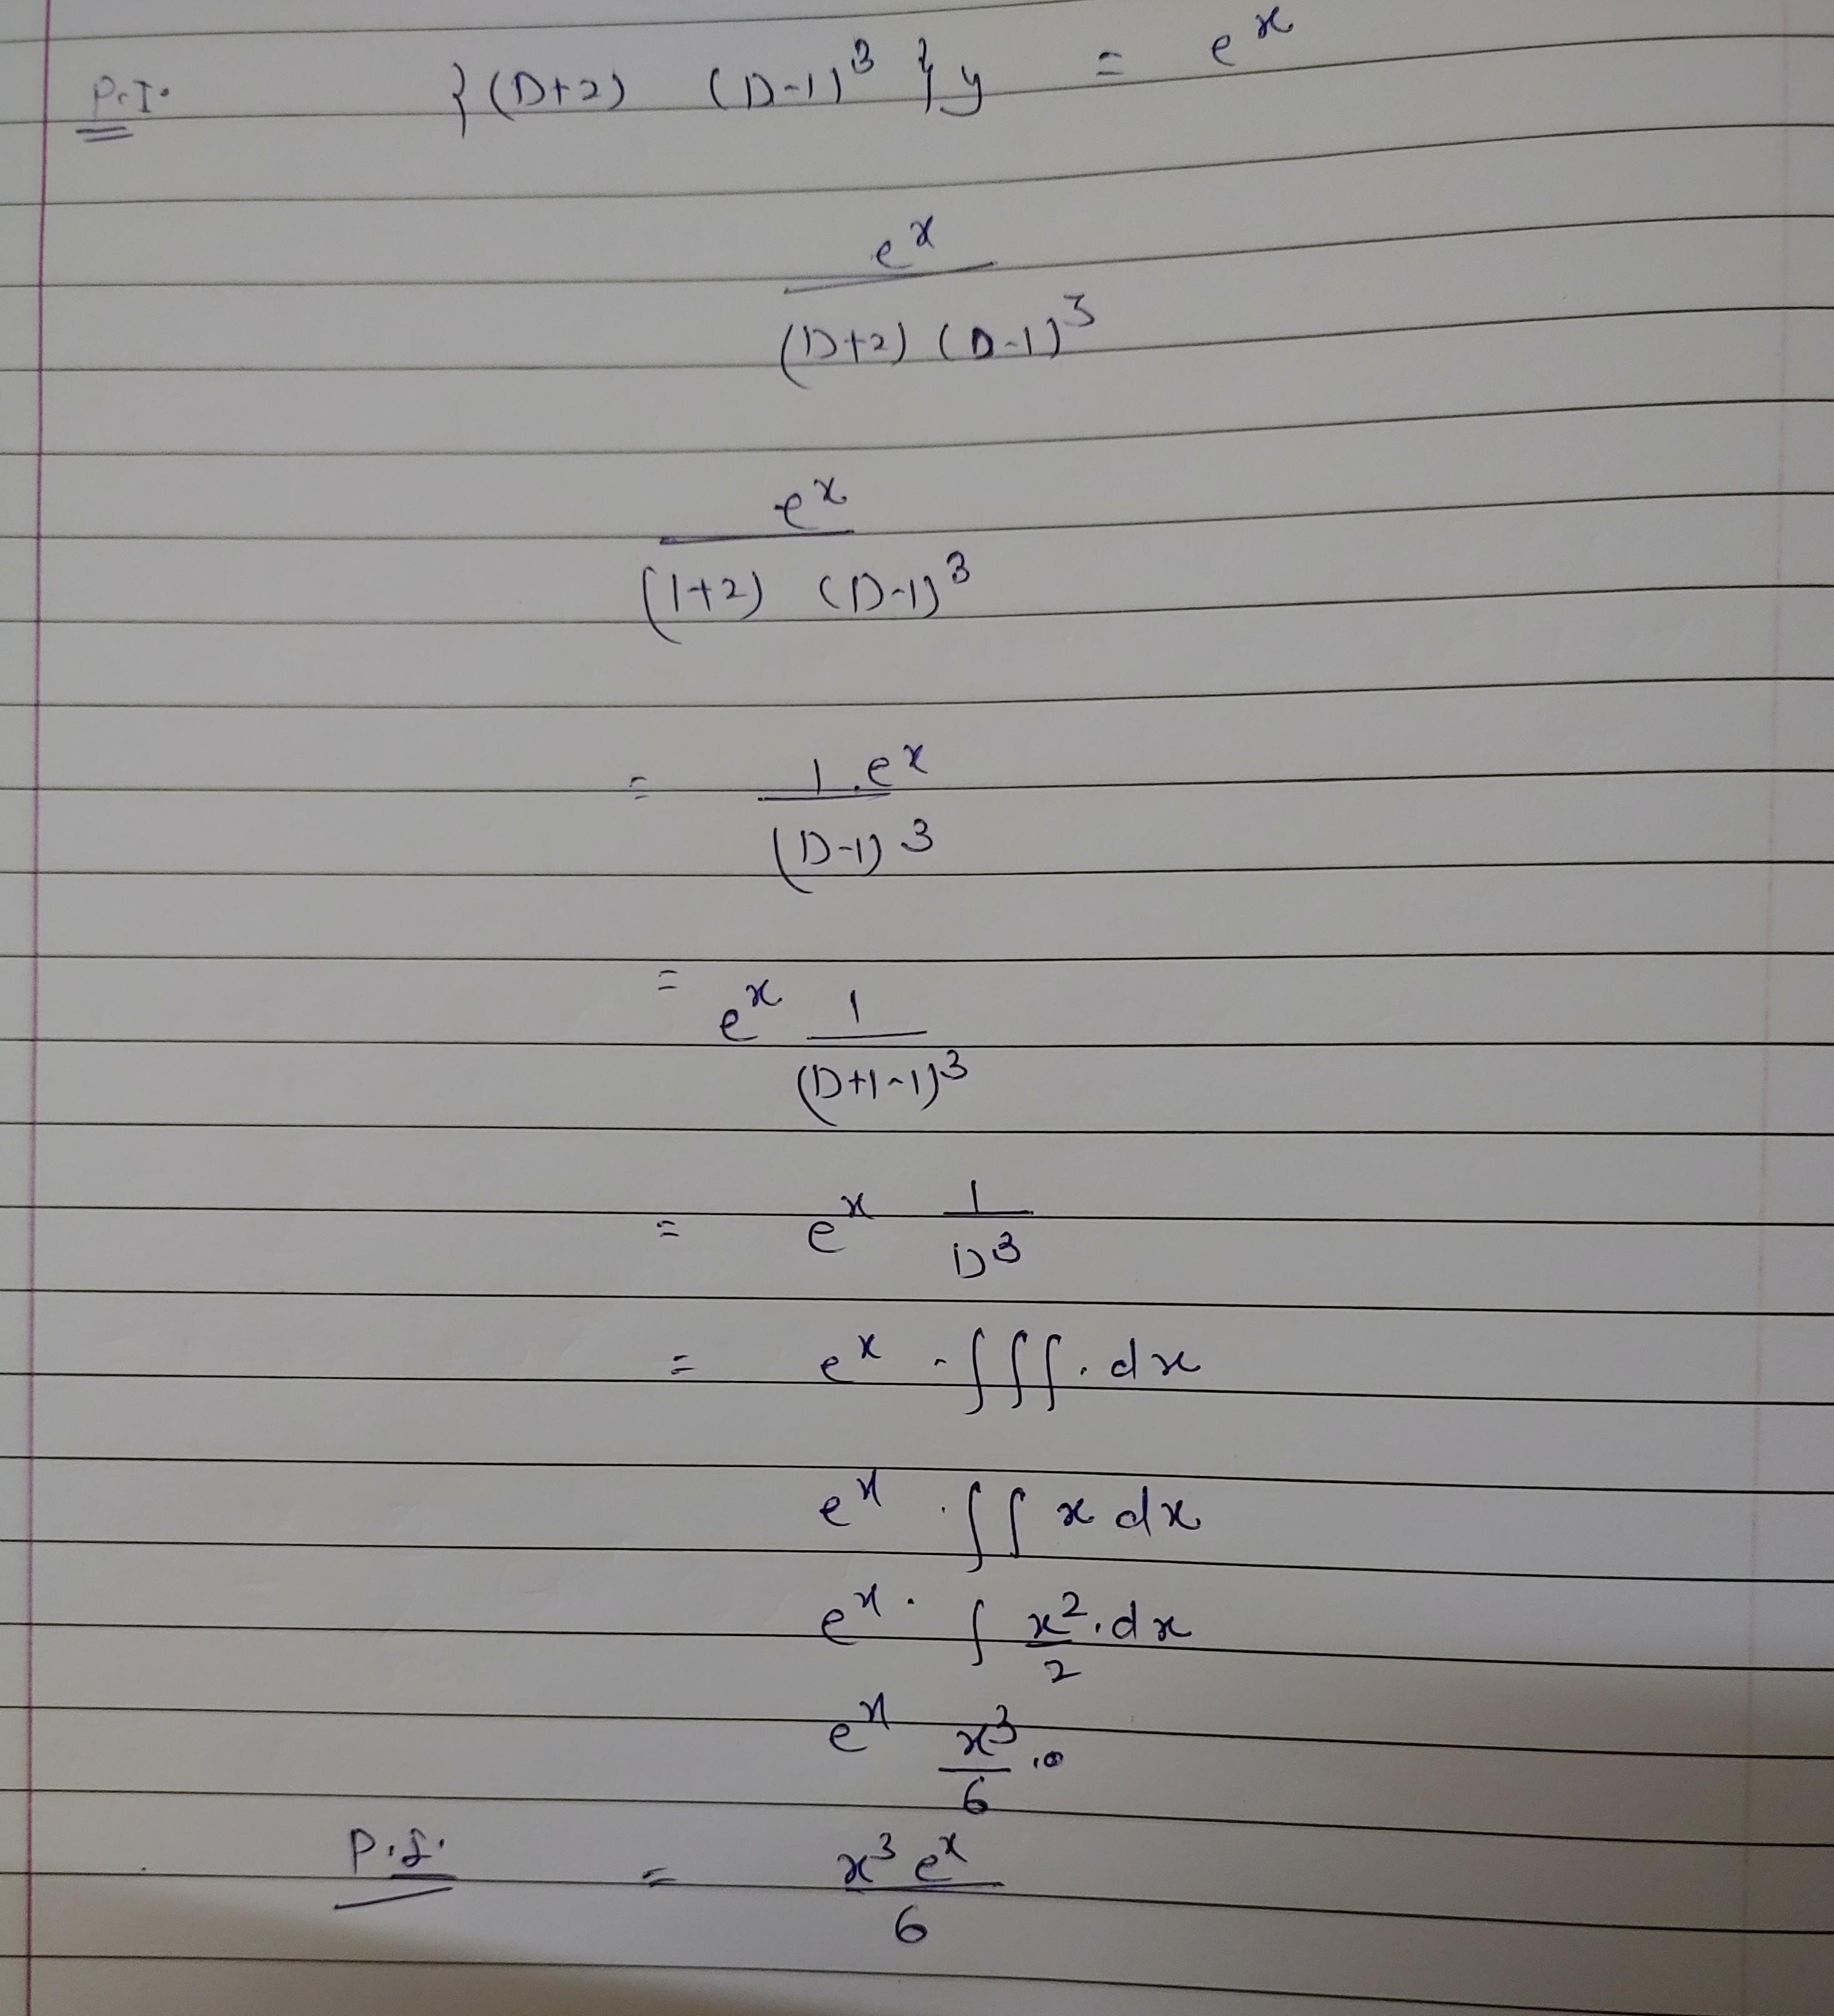 P.I. {(D+2) (D-1)³}y = eˣ
eˣ
(D+2) (D-1)³
eˣ
(1+2) (D-1)³
= 1.eˣ
(D-1)³
= eˣ 1
(D+1-1)³
= eˣ 1
D³
= eˣ . ∫∫∫.dx
eˣ . ∫∫ x dx
eˣ . ∫ x².dx
2
eˣ x³
6
P.I. = x³ eˣ
6